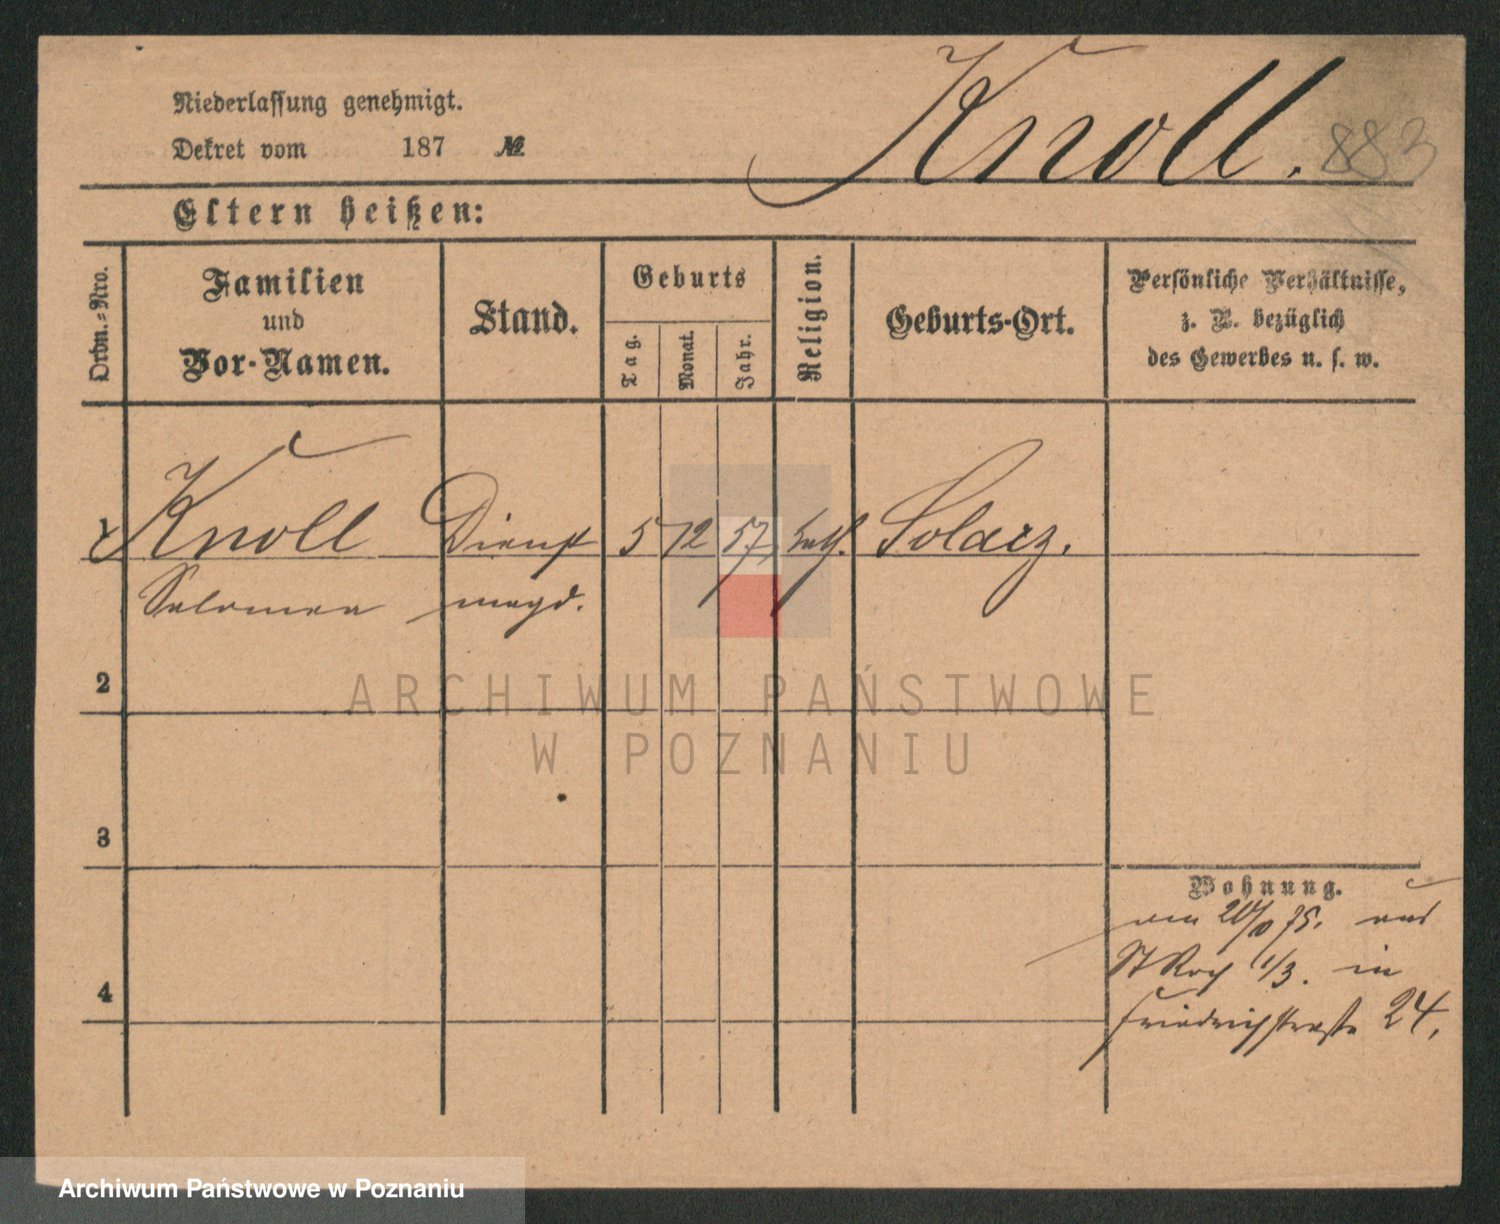 Knoll. 883
Niederlassung genehmigt.
Dekret vom 187 №
Eltern heißen:
Ordn.-Nro.
Familien
und
Vor-Namen.
Stand.
Geburts
Tag.
Monat.
Jahr.
Religion.
Geburts-Ort.
Persönliche Verhältnisse,
z. B. bezüglich
des Gewerbes u. s. w.
1 Knoll Dienst 5 12 57 kath. Solacz.
Salomea magd.
2
3
4
Wohnung.
75. aus
St Roch 1/3. in
Friedrichstraße 24.
ARCHIWUM PAŃSTWOWE
W POZNANIU
Archiwum Państwowe w Poznaniu